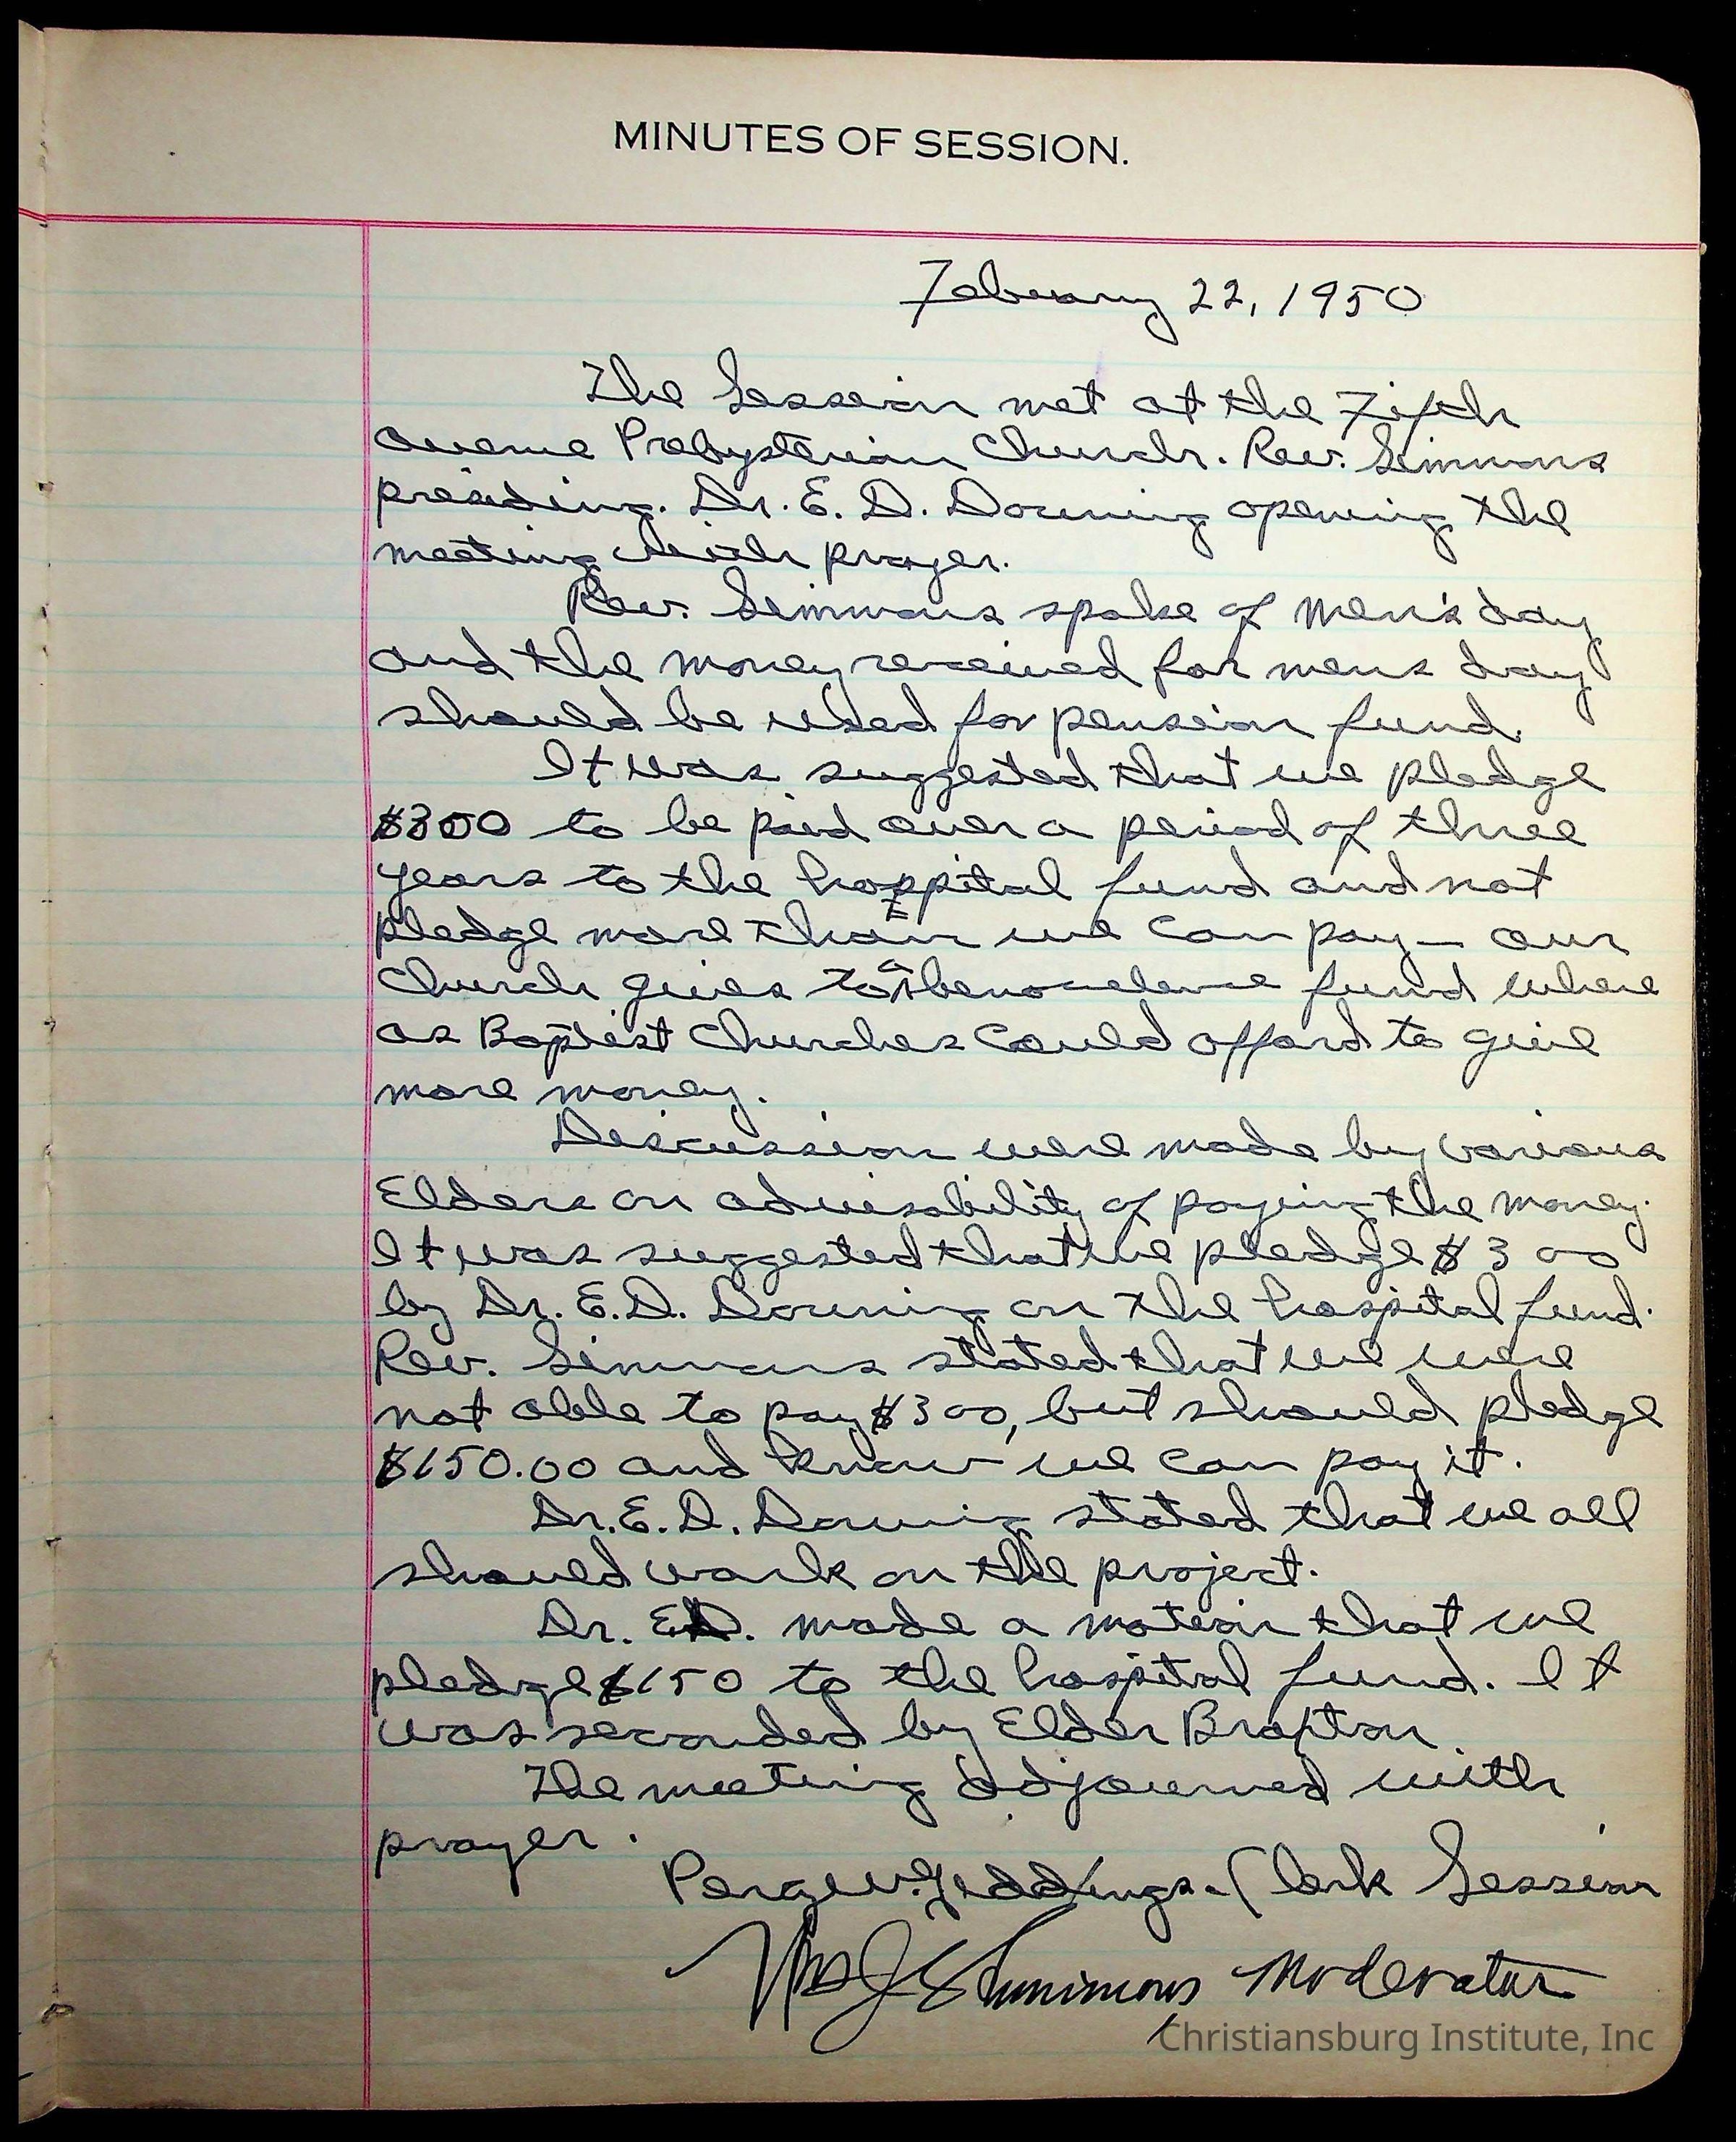 MINUTES OF SESSION.
February 22, 1950
The Session met at the Fifth
avenue Prebysterian Church. Rev. Simmons
presiding. Dr. E. D. Downing opening the
meeting with prayer.
Rev. Simmons spoke of Men's day
and the money received for mens day
should be used for pension fund.
It was suggested that we pledge
$300 to be paid over a period of three
years to the hospital fund and not
pledge more than we can pay— our
Church gives to a benovelence fund where
as Baptist Churches could afford to give
more money.
Discussion were made by various
Elders on advisability of paying the money.
It was suggested that we pledge $300
by Dr. E.D. Downing on the hospital fund.
Rev. Simmons stated that we were
not able to pay $300, but should pledge
$150.00 and know we can pay it.
Dr. E. D. Downing stated that we all
should work on the project.
Dr. E.D. made a motion that we
pledge $150 to the hospital fund. It
was seconded by Elder Braxton.
The meeting adjourned with
prayer.
W. Giddings. Clerk Session
Wm J Simmons Moderator
Christiansburg Institute, Inc